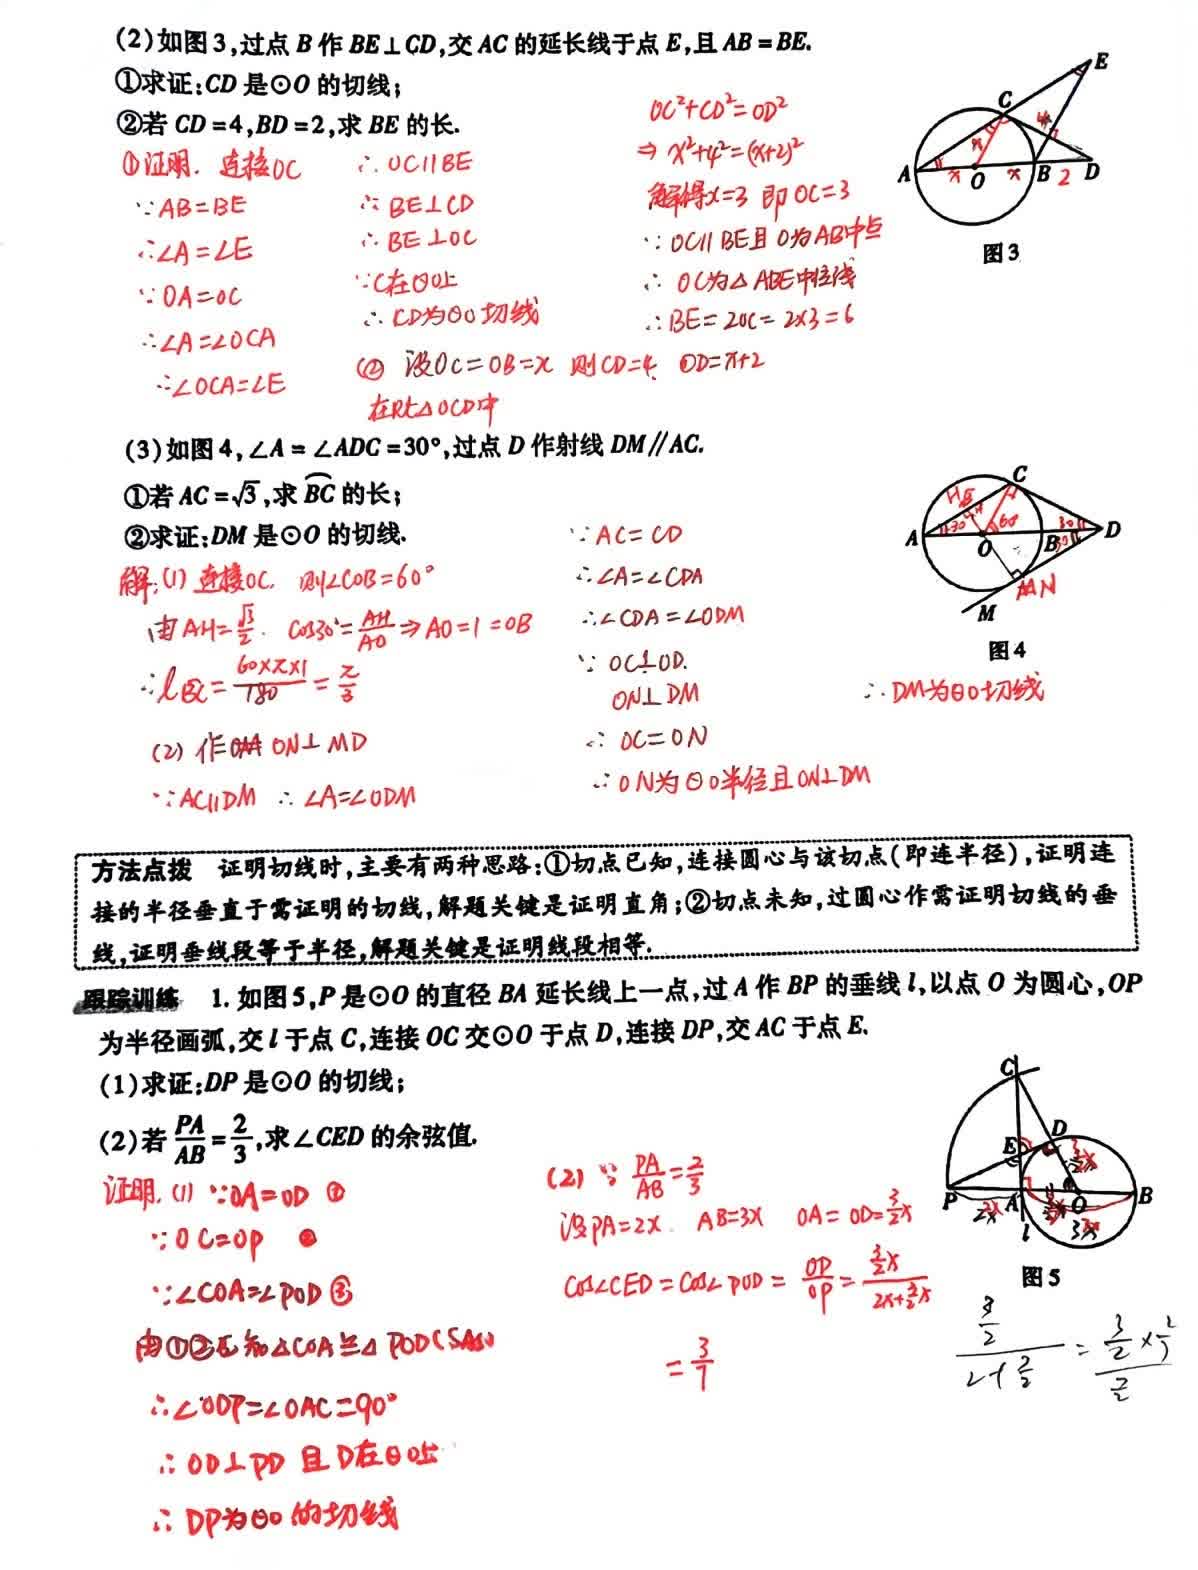 (2)如图3,过点B作BE⊥CD,交AC的延长线于点E,且AB=BE.
①求证:CD是⊙O的切线;
②若CD=4,BD=2,求BE的长.
①证明.连接OC
∵AB=BE
∴∠A=∠E
∵OA=OC
∴∠A=∠OCA
∴∠OCA=∠E
∴OC∥BE
∵BE⊥CD
∴BE⊥OC
∵C在⊙O上
∴CD为⊙O切线
② 设OC=OB=x 则CD=4 OD=x+2
在Rt△OCD中
OC²+CD²=OD²
⇒x²+4²=(x+2)²
解得x=3 即OC=3
∵OC∥BE且O为AB中点
∴OC为△ABE中位线
∴BE=2OC=2×3=6
E
C
4
x
A
x
O
x
B
2
D
图3
(3)如图4,∠A=∠ADC=30°,过点D作射线DM∥AC.
①若AC=√3,求BC的长;
②求证:DM是⊙O的切线.
解:(1)连接OC. 则∠COB=60°
由AH=√3/2. cos30°=AH/AO⇒AO=1=OB
∴l BC=60×π×1/180=π/3
(2)作ON⊥MD
∵AC∥DM ∴∠A=∠ODM
∵AC=CD
∴∠A=∠CDA
∴∠CDA=∠ODM
∵OC⊥OD.
ON⊥DM
∴OC=ON
∴ON为⊙O半径且ON⊥DM
∴DM为⊙O切线
C
H
A
30
60
30
D
O
B
30
N
M
图4
方法点拨 证明切线时,主要有两种思路:①切点已知,连接圆心与该切点(即连半径),证明连
接的半径垂直于需证明的切线,解题关键是证明直角;②切点未知,过圆心作需证明切线的垂
线,证明垂线段等于半径,解题关键是证明线段相等.
跟踪训练 1.如图5,P是⊙O的直径BA延长线上一点,过A作BP的垂线l,以点O为圆心,OP
为半径画弧,交l于点C,连接OC交⊙O于点D,连接DP,交AC于点E.
(1)求证:DP是⊙O的切线;
(2)若PA/AB=2/3,求∠CED的余弦值.
证明.(1)∵OA=OD ①
∵OC=OP ②
∵∠COA=∠POD③
由①②③知△COA≌△POD(SAS)
∴∠ODP=∠OAC=90°
∴OD⊥PD 且D在⊙O上
∴DP为⊙O的切线
(2)∵PA/AB=2/3
设PA=2x. AB=3x OA=OD=3/2x
cos∠CED=cos∠POD=OD/OP=3/2x/2x+3/2x
=3/7
C
D
E
P
2x
A
O
B
3x
l
图5